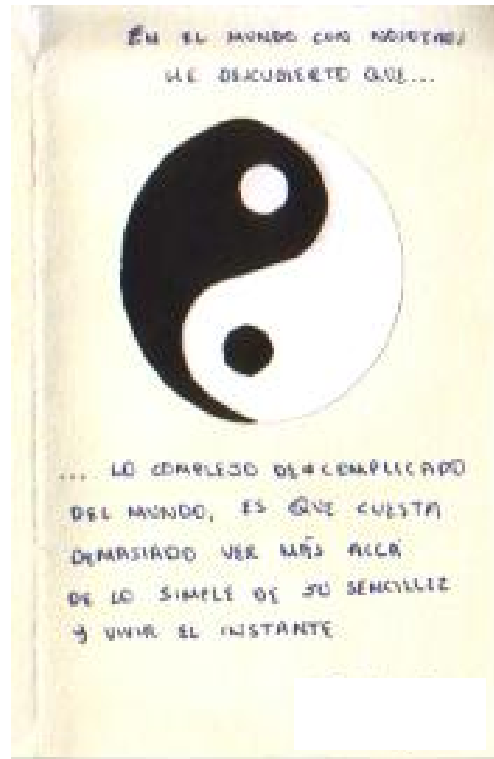 EN EL MUNDO CON
HE DESCUBIERTO QUE...
... LO COMPLEJO DE COMPLICADO
DEL MUNDO, ES QUE CUESTA
DEMASIADO VER MÁS ALLÁ
DE LO SIMPLE DE SU SENCILLEZ
Y VIVIR EL INSTANTE